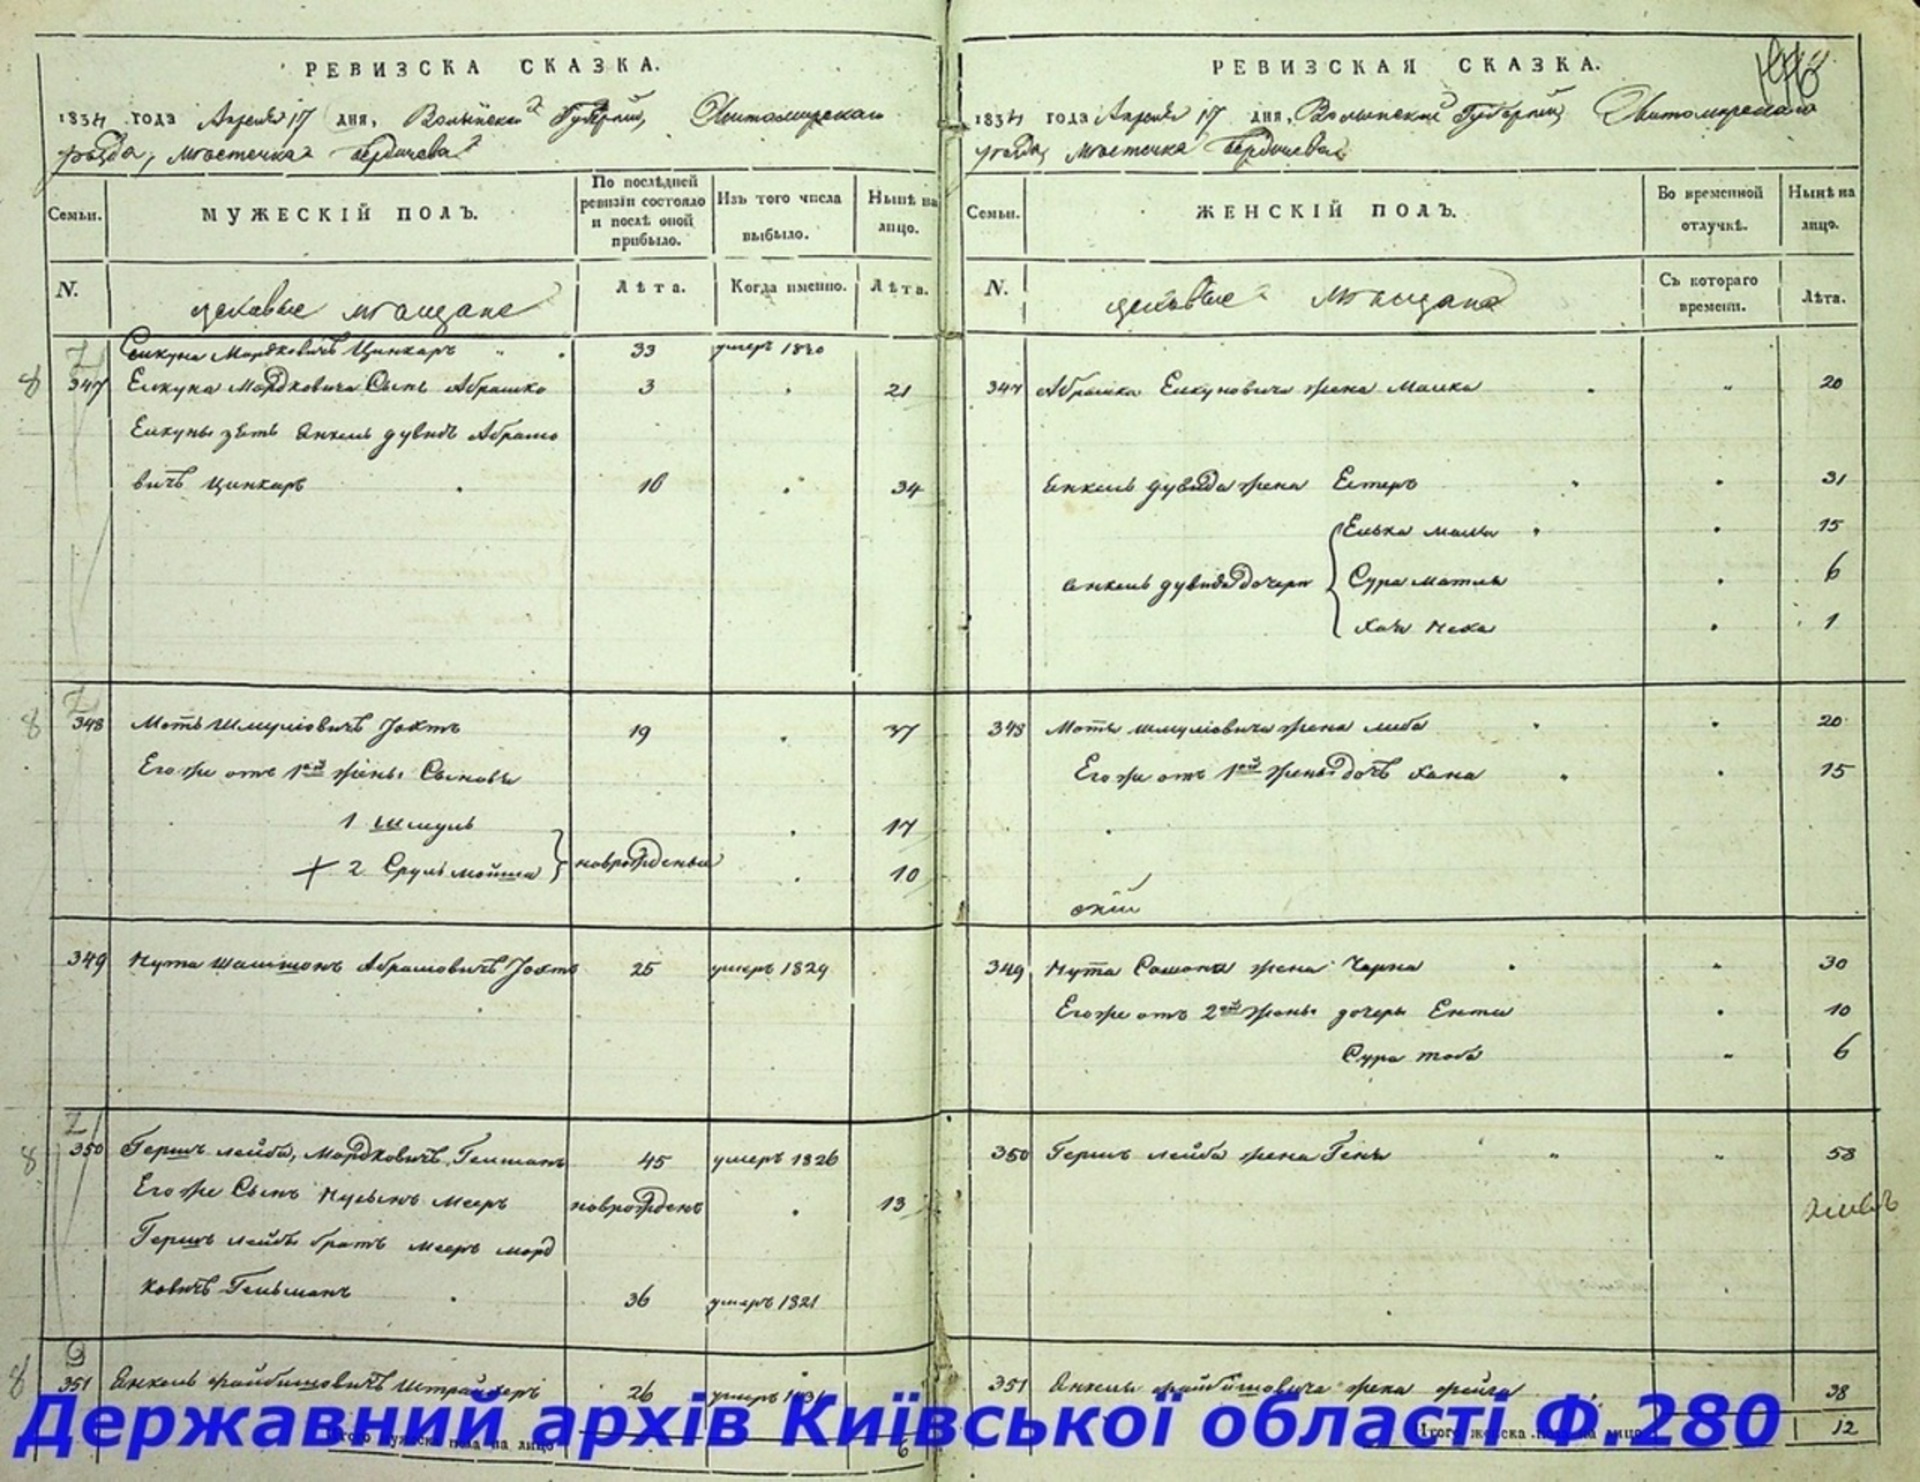 РЕВИЗСКА СКАЗКА.
1834 года Апреля 17 дня, Волынской Губернии, Житомирскаго
уезда, местечка Бердичева
Семьи.
МУЖЕСКІЙ ПОЛЪ.
По послѣдней ревизіи состояло и послѣ оной прибыло.
Изъ того числа выбыло.
Нынѣ на лицо.
N.
цеховые мещане
Лѣта.
Когда именно.
Лѣта.
Мордковичъ Цинкаръ 33 умеръ 1830
347 Мордковича Сынъ Абрашко 3 21
зять Янкель дувидъ Абрамо
вичъ Цинкаръ 16 34
348 Моть Шмуліовичъ 19 37
Его же отъ 1ой жены Сыновья
1 Шмуль 17
2 Сруль мойша новорожденные 10
349 Нута Абрамовичъ 25 умеръ 1829
350 Гершъ лейба, Мордковичъ Гельманъ 45 умеръ 1826
Его же Сынъ Нусынъ Мееръ новорожденъ 13
Гершъ лейбы братъ Мееръ морд
ковичъ Гельманъ 36 умеръ 1821
351 Янкель файбишовичъ 26 умеръ
Итого мужеска пола на лицо 6
РЕВИЗСКАЯ СКАЗКА.
1834 года Апреля 17 дня, Волынской Губернии, Житомирскаго
уезда, местечка Бердичева
Семьи.
ЖЕНСКІЙ ПОЛЪ.
Во временной отлучкѣ.
Нынѣ на лицо.
N.
цеховые мещане
Съ котораго времени.
Лѣта.
347 Абрашка жена Малка 20
Янкель дувида жена Естеръ 31
Енька малка 15
Янкель дувида дочери Сура матля 6
Хая 1
348 Моть шмуліовича жена либа 20
Его же отъ 1ой жены дочь Хана 15
349 Нута жена Чарна 30
Его же отъ 2ой жены дочери Ента 10
Сура тоба 6
350 Гершъ лейба жена Геня 58
351 Янкеля файбишовича жена фейга 38
Итого женска пола на лицо 12
Державний архів Київської області Ф.280